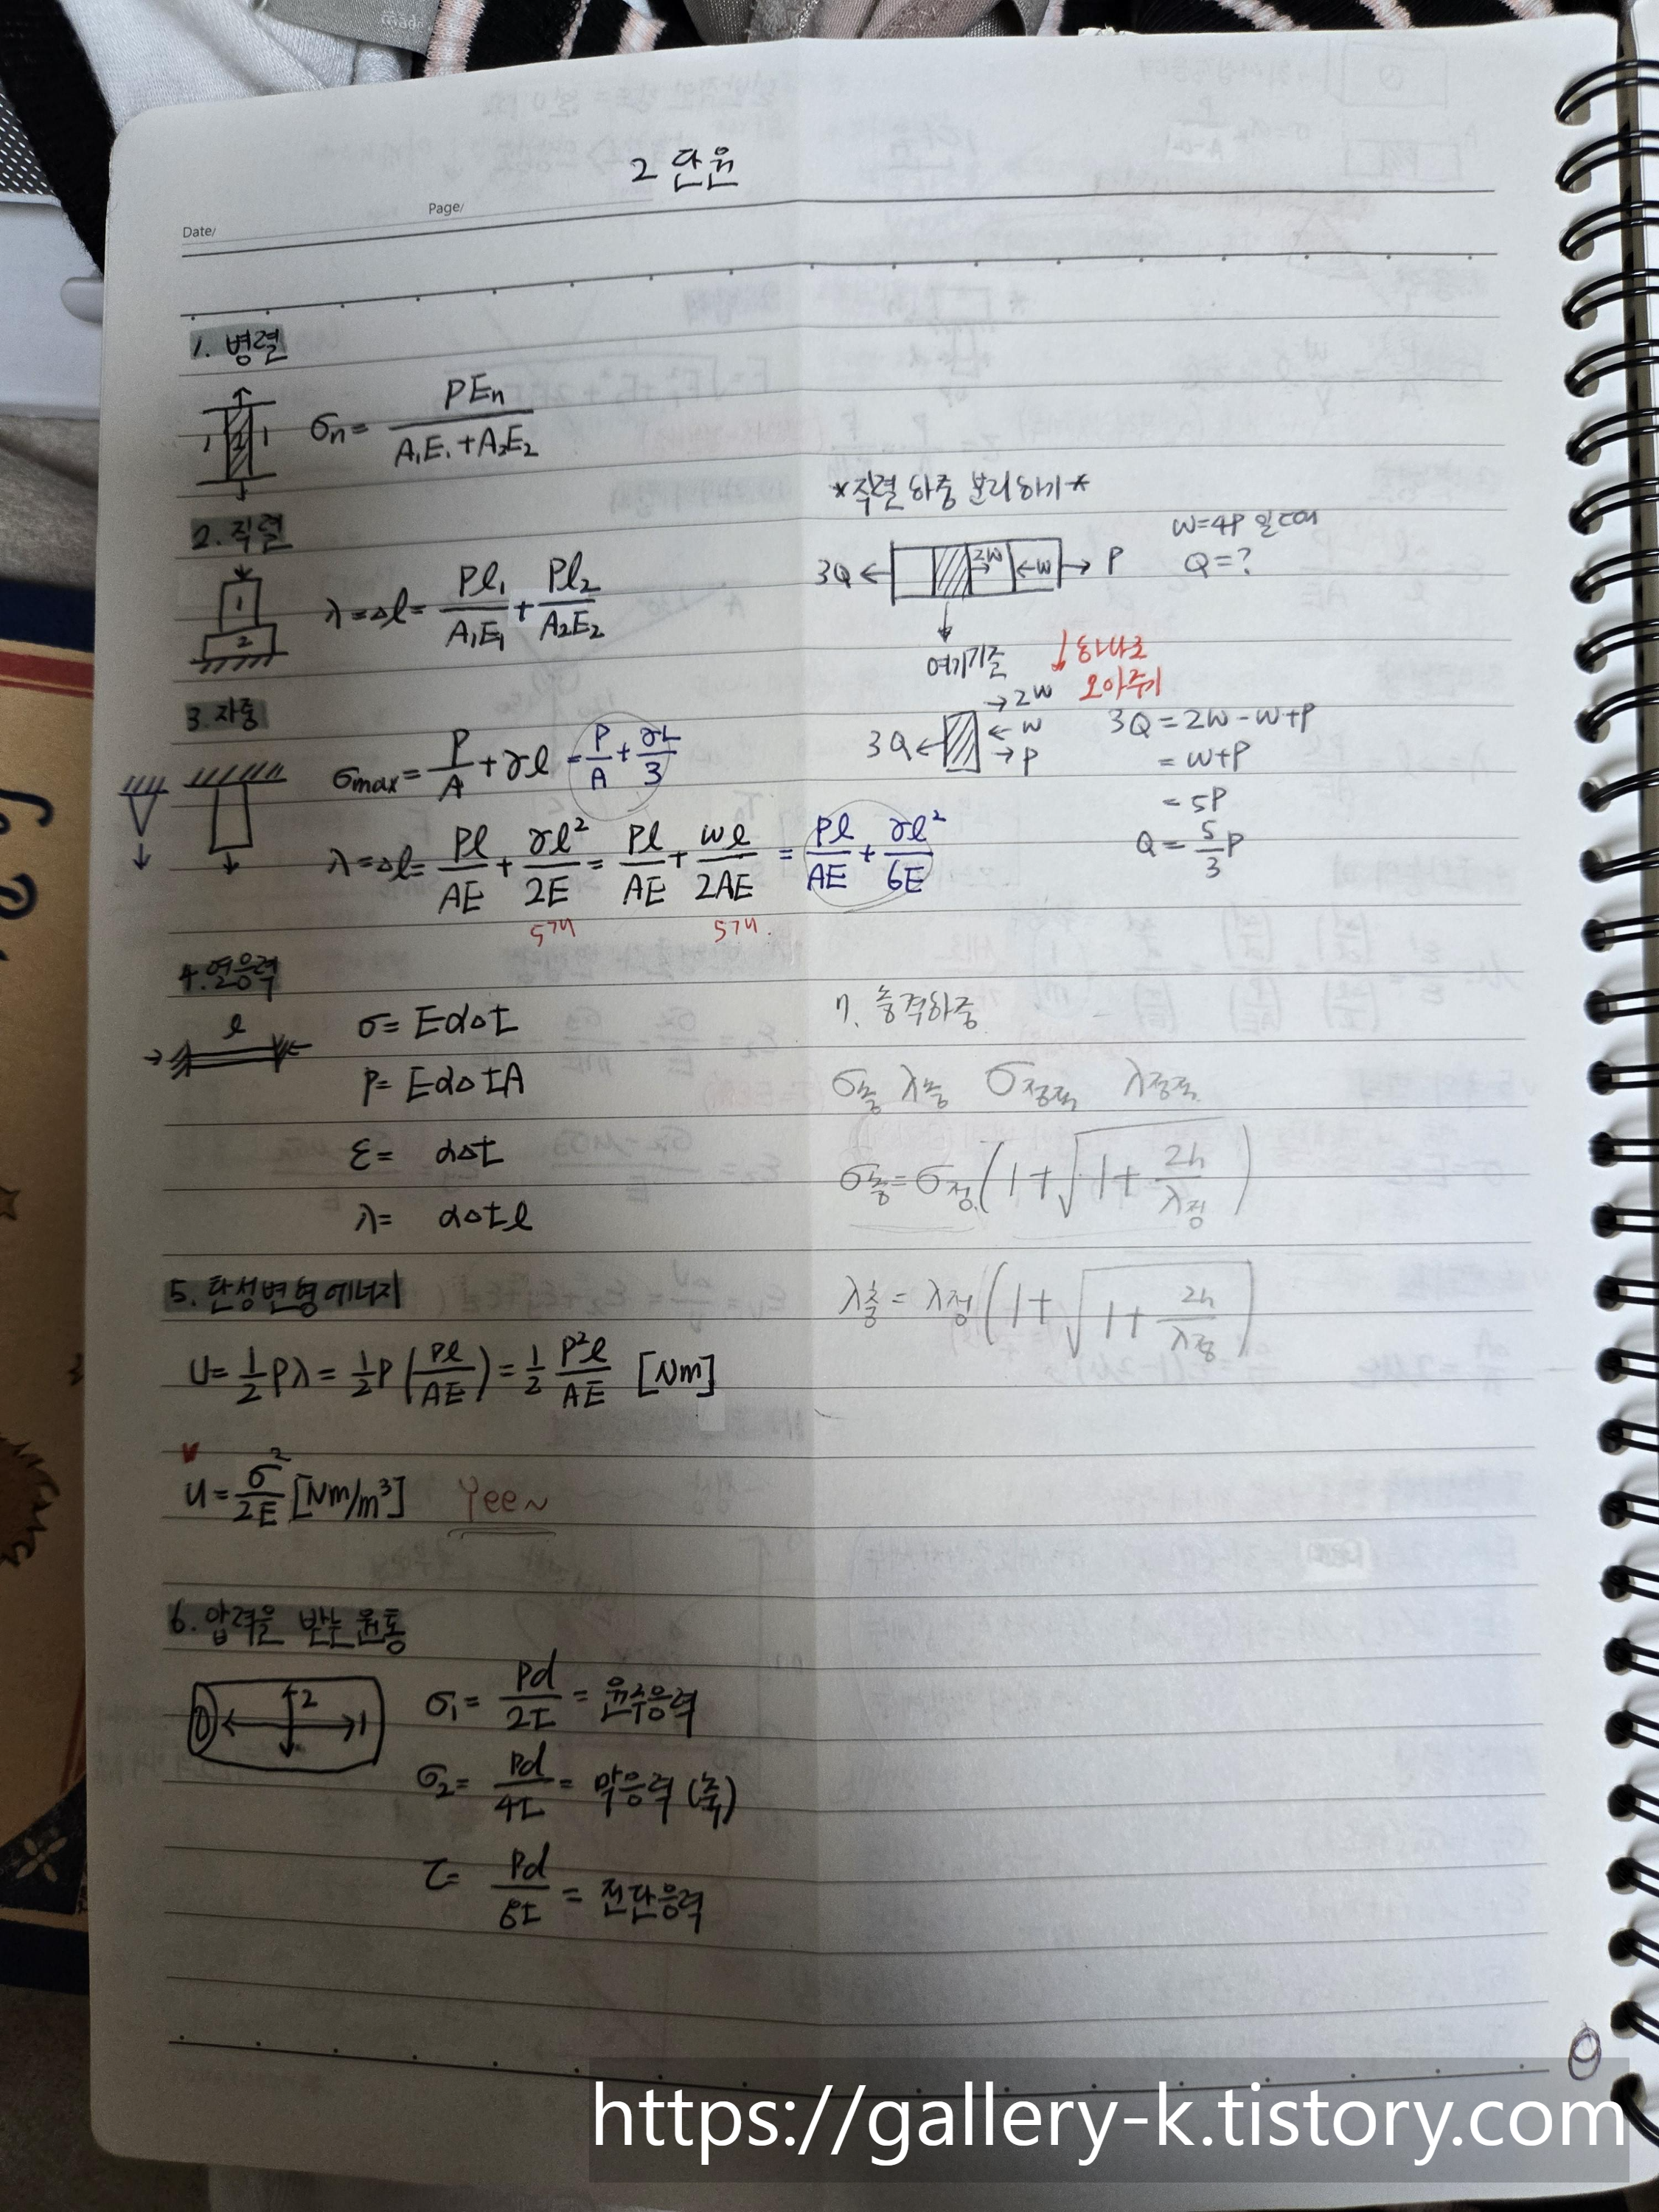 2 단원
Date/
Page/
1. 병렬
1 2 1
σn = PEn / (A₁E₁+A₂E₂)
2. 직렬
1
2
λ=Δl= Pl₁/A₁E₁ + Pl₂/A₂E₂
3. 자중
σmax = P/A + γl = P/A + γL/3
λ=Δl= Pl/AE + γl²/2E = Pl/AE + wl/2AE = Pl/AE + γl²/6E
5개 5개
4. 열응력
l
σ= EαΔt
P= EαΔtA
ε= αΔt
λ= αΔtl
5. 탄성변형에너지
U= 1/2 Pλ = 1/2 P (Pl/AE) = 1/2 P²l/AE [Nm]
u= σ²/2E [Nm/m³] Yee~
6. 압력을 받는 원통
2
1
σ₁= Pd/2t = 원주응력
σ₂= Pd/4t = 막응력 (축)
τ= Pd/8t = 전단응력
*직렬 하중 분리하기*
3Q 2W W P
W=4P 일때
Q=?
여기기준
하나로
모아주기
3Q → 2W
← W
→ P
3Q = 2W - W + P
= W+P
= 5P
Q = 5/3 P
7. 충격하중
σ충 λ충 σ정적 λ정적
σ충 = σ정 (1+√(1+ 2h/λ정))
λ충 = λ정 (1+√(1+ 2h/λ정))
https://gallery-k.tistory.com